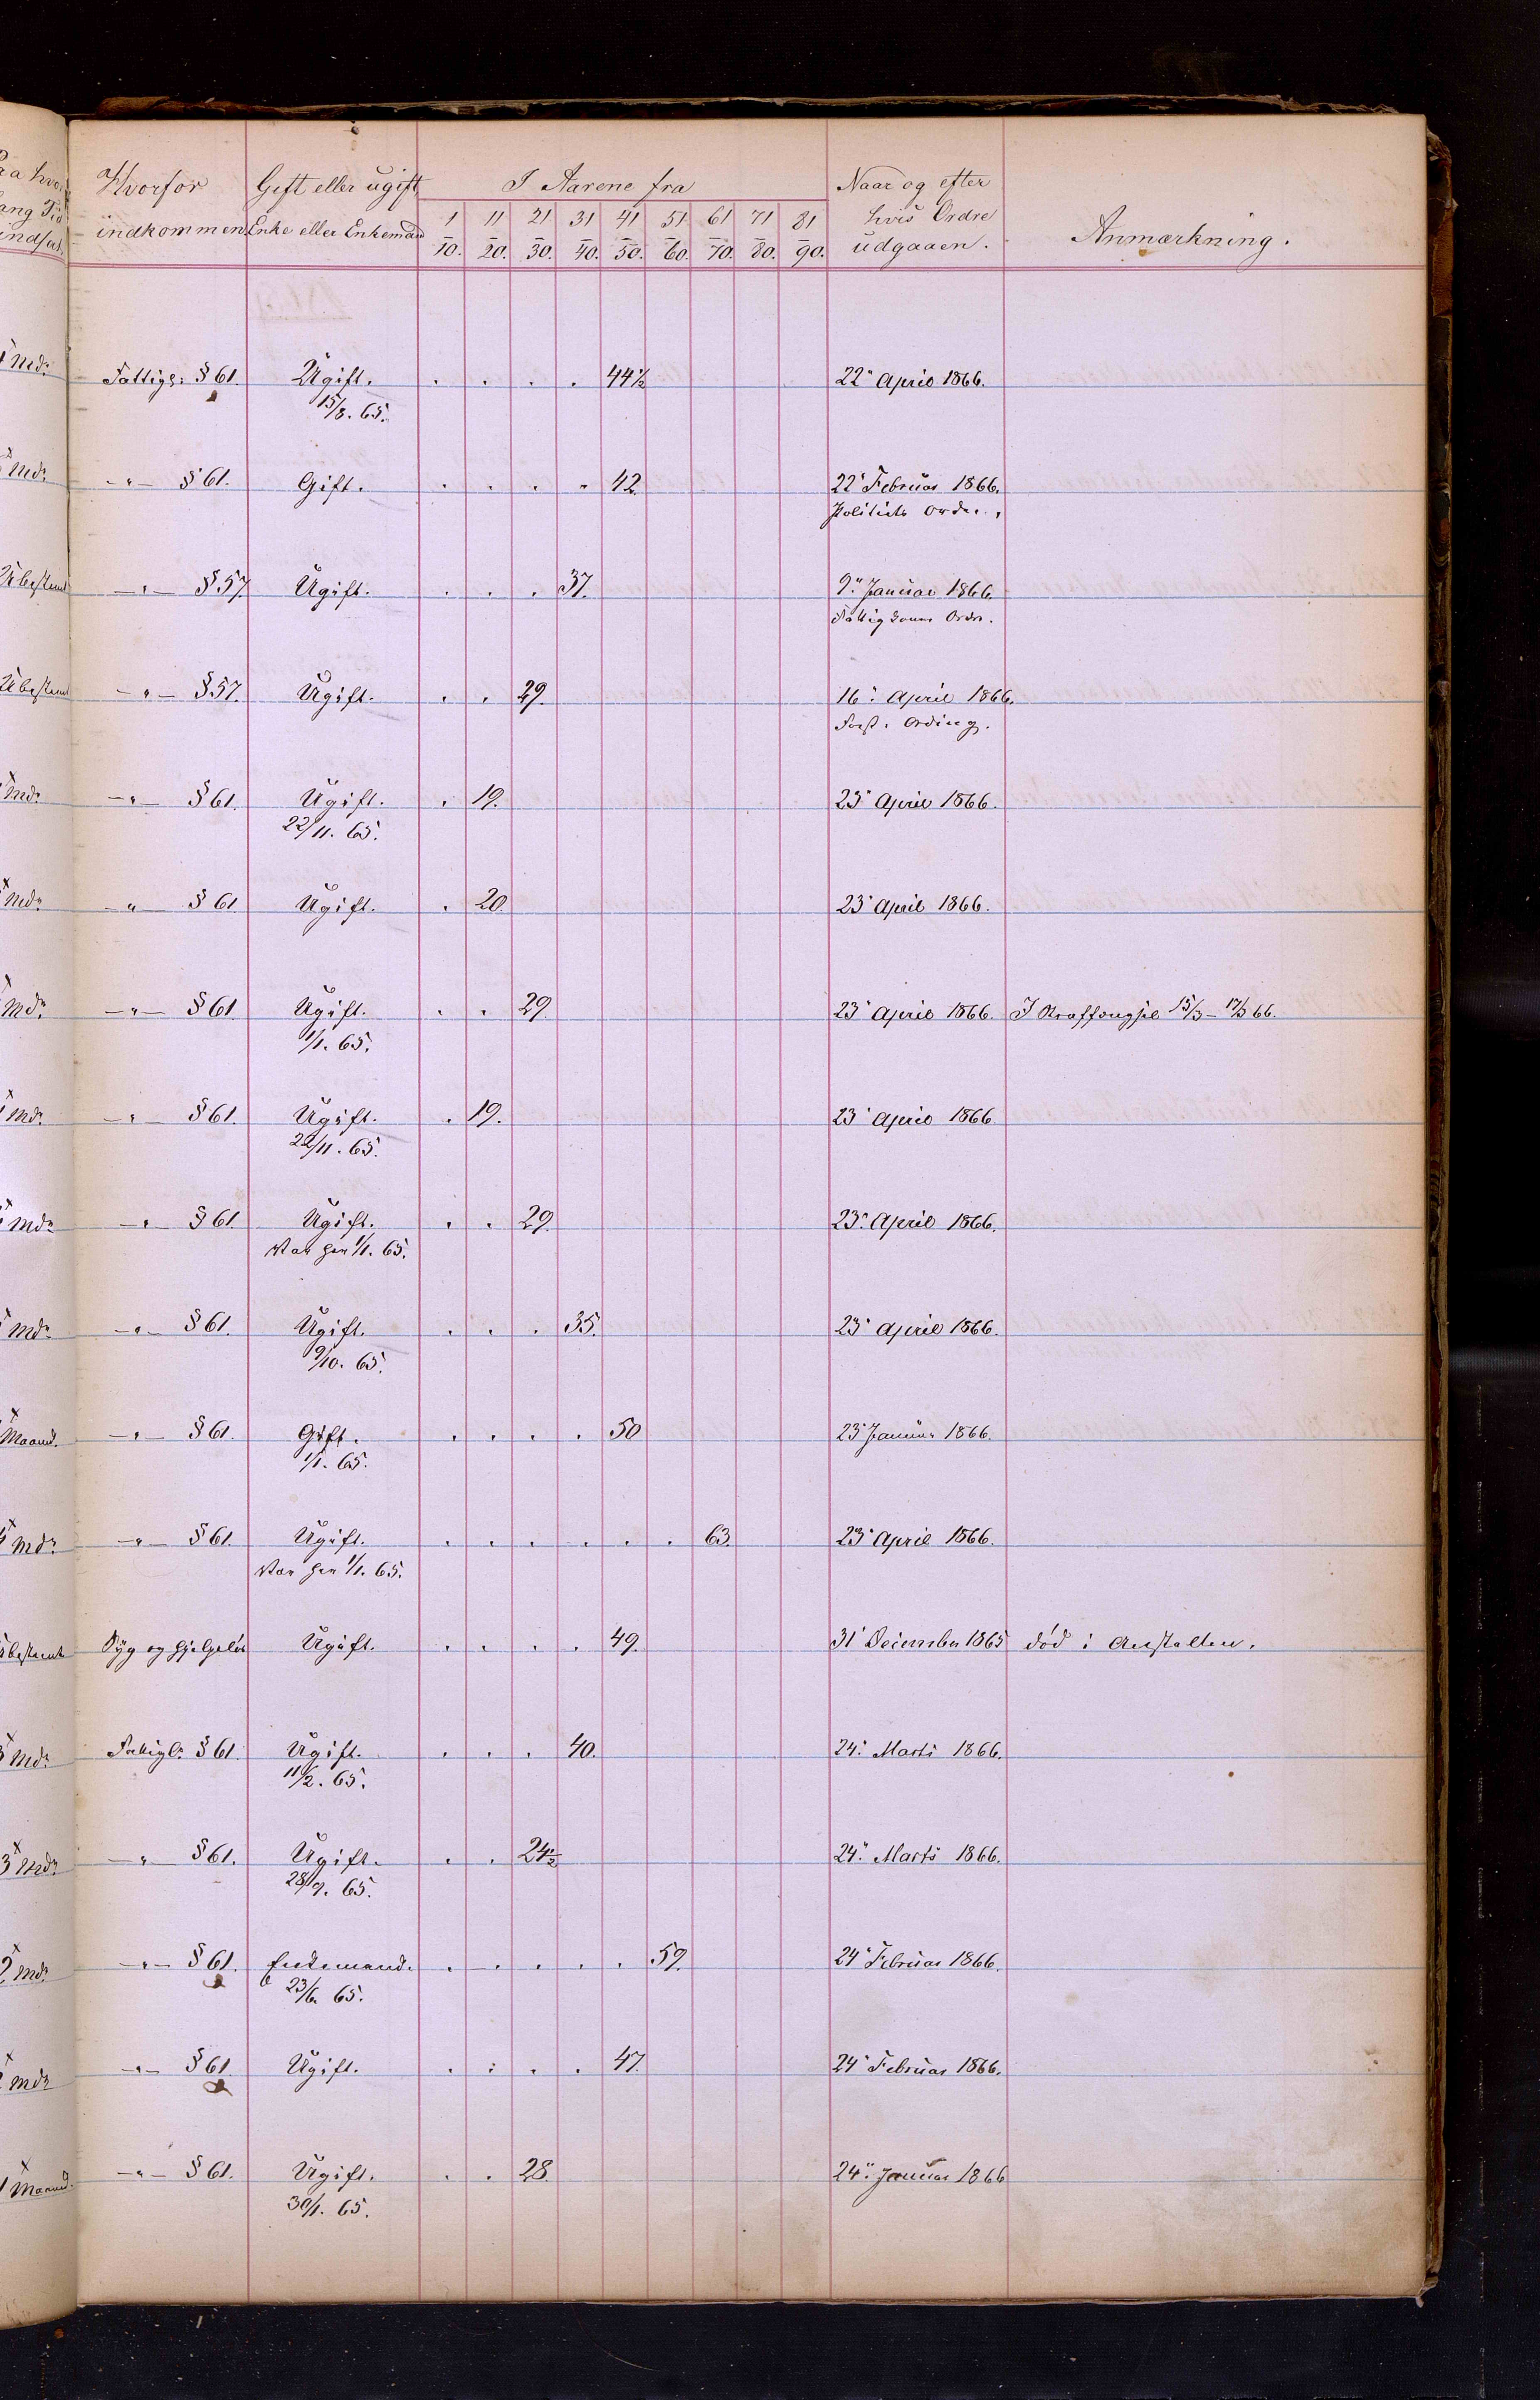 Hvorfor indkommen Gift eller ugift Enke eller Enkemand I Aarene fra Naar og efter hvis Ordre udgaaen. Anmærkning.
1/10. 11/20. 21/30. 31/40. 41/50. 51/60. 61/70. 71/80. 81/90.
Mdr. Fattigl: § 61. Ugift. . . . . 44½ 22' April 1866.
15/8. 65.
Mdr. -"- § 61. Gift. . . . . 42. 22' Februar 1866.
Politiets Ordre.
Ubestemt -"- § 57. Ugift. . . . 37. 9" Januar 1866.
Fattigdoms Ordr.
Ubestemt -"- § 57. Ugift. . . 29. 16: April 1866.
Ordning.
Mdr. -"- § 61. Ugift. . 19. 23' April 1866.
22/11. 65.
Mdr. -"- § 61 Ugift. . 20. 23' April 1866.
Mdr. -"- § 61 Ugift. . . 29 23' April 1866. I Straffængsel 15/3 - 17/3 66.
1/1. 65.
Mdr. -"- § 61. Ugift. . 19. 23' April 1866
22/11. 65.
Mdr. -"- § 61 Ugift. . . 29. 23' April 1866.
Var her 1/1. 65.
Mdr. -"- § 61. Ugift. . . . 35. 23' April 1866.
9/10. 65.
Maaned. -"- § 61. Gift. . . . . 50 23' Januar 1866.
1/1. 65.
Mdr. -"- § 61. Ugift. . . . . . . 63. 23' April 1866.
Var her 1/1. 65.
Ubestemt Syg og hjelpeløs Ugift. . . . . 49. 31' December 1865 død i Anstalten.
3 Mdr. Fattigl: § 61. Ugift. . . . 40. 24: Marts 1866.
11/2. 65.
3 Mdr. -"- § 61. Ugift. . . 24½ 24" Marts 1866.
28/9. 65.
2 Mdr. -"- § 61. Enkemand. . . . . . 59. 24' Februar 1866.
23/6. 65.
Mdr. -"- § 61 Ugift. . . . . 47. 24' Februar 1866.
1 Maaned. -"- § 61. Ugift. . . 28. 24" Januar 1866
30/1. 65.